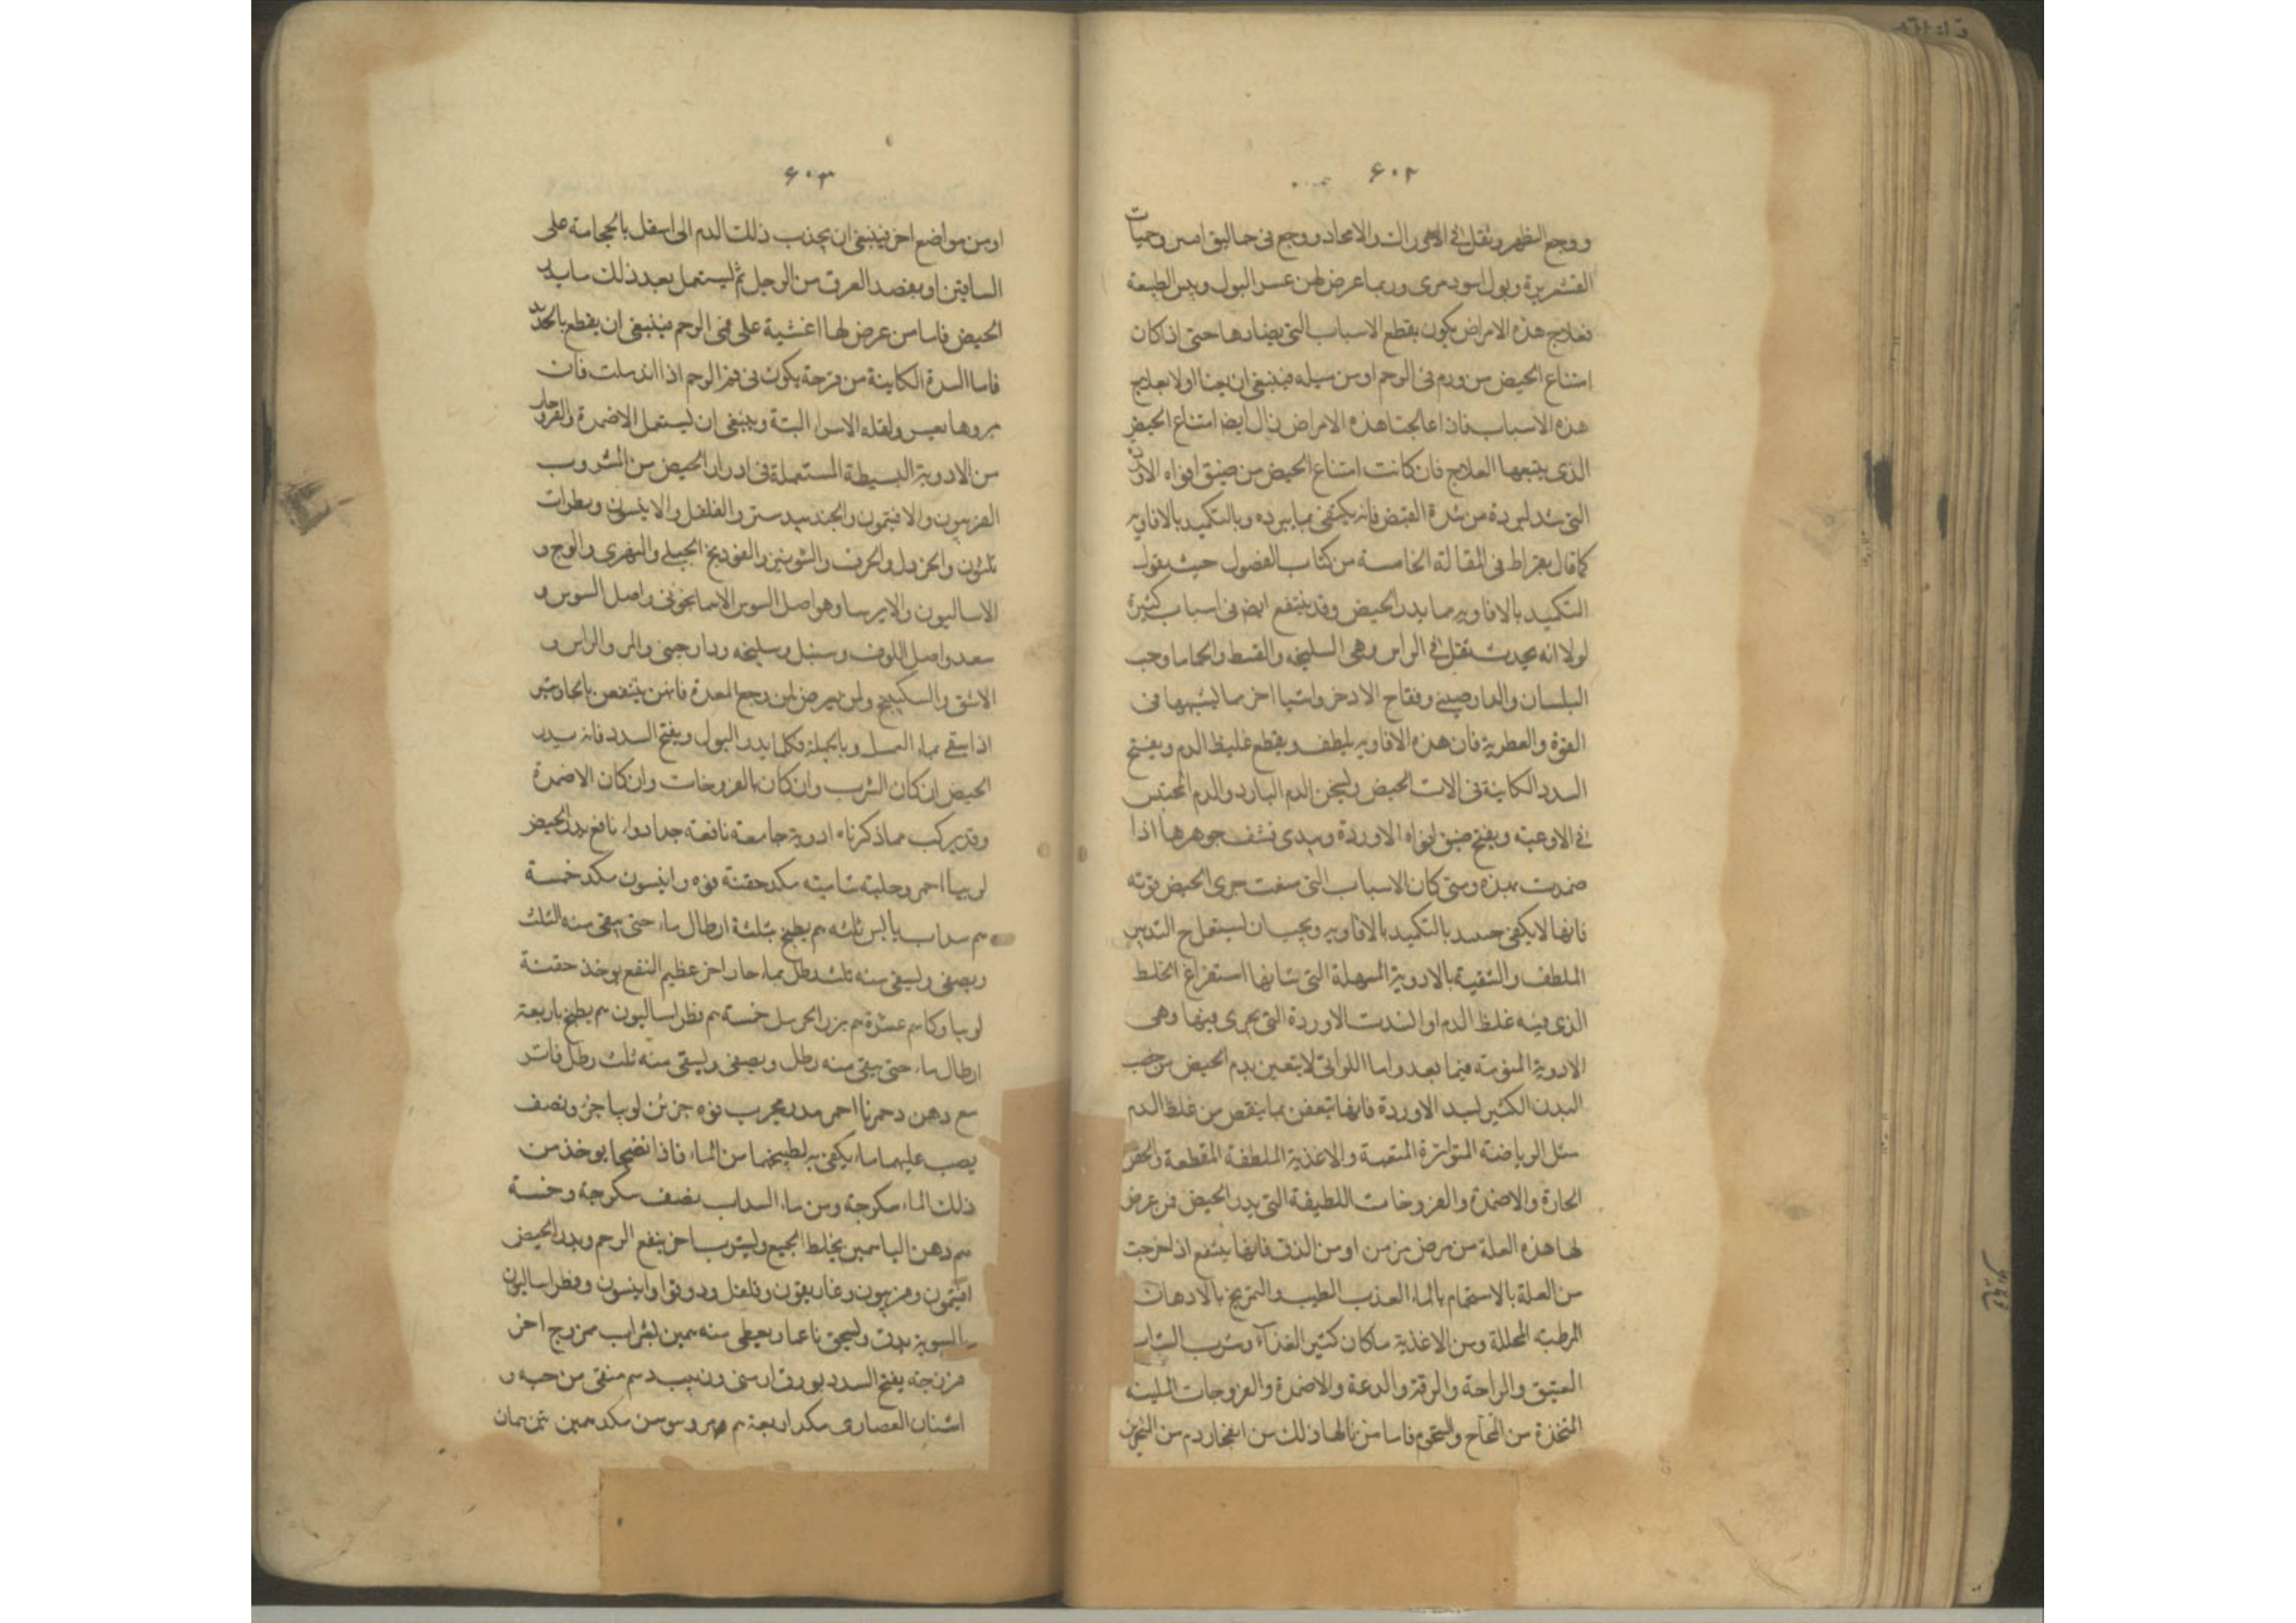 ۶۰۲
ووجع الظهر وثقل في الاوراك والامحاد ووجع في حماليق امين وحميات
القشعريرة وبول اسود مرى وربما عرض لهن عسر البول ويبس الطبيعة
فعلاج هذه الامراض يكون بقطع الاسباب التي يضادها حتى اذ كان
امتناع الحيض من ورم في الرحم او من ميله فينبغي ان يعنا اولا بعلاج
هذه الاسباب فان اعالجت هذه الامراض زال ايضا امتناع الحيض
الذي يتبعها العلاج فان كانت امتناع الحيض من ضيق افواه الاوردة
التي شد لبرده من شدة القبض فانه يكتفى بما يبرده وبالتكميد بالافاويه
كما قال بقراط في المقالة الخامسة من كتاب الفصول حيث يقول
التكميد بالافاويه مما يدر الحيض وقد ينتفع ايضا في اسباب كثيرة
لولا انه يحدث ثقل في الراس وهي السليخه والقسط والحماما وحب
البلسان والدارصيني وفقاح الاذخر واشيا اخر مما ليشبهها في
القوة والعطرية فان هذه الافاويه يلطف ويقطع غليظ الدم ويفتح
السدد الكاينة في الات الحيض وليسخن الدم البارد والدم المحتبس
في الاوعية ويفتح ضيق افواه الاوردة ويبدى نشف جوهرها اذا
ضمدت بهذه ومتى كان الاسباب التي منعت جرى الحيض قوته
فانها لا يكفى حسد بالتكميد بالافاويه ويجب ان ليستعمل ح التدبير
الملطف والتنقية بالادوية المسهلة التي شانها استفراغ الخلط
الذي فيه غلظ الدم او انسدت الاوردة التي يجرى فيها وهي
الادوية المنومته فيما بعد واما اللواتي لا بتعين بدم الحيض من خصب
البدن الكثير لسد الاوردة فانها تتعفن بما ينقص من غلظ الدم
مثل الرياضة المتواترة المتعبة والاغذية الملطفة المقطعة والحقن
الحارة والاضمدة والفروخات اللطيفة التي يدر الحيض فمن عرض
لها هذه العلة من مرض مزمن او من الدق فانها ينتفع اذا خرجت
من العلة بالاستحمام بالماء العذب الطيب والتمريخ بالادهان
المرطبه المحللة ومن الاغذية ماكان كثير الغذآء وشرب الشراب
العتيق والراحة والرقة والدعة والاضمدة والفروجات الملينه
المتخذة من المخاخ والشحوم فاما من نالها ذلك من انفجار دم من المنخرين
۶۰۳
اومن مواضع اخر فينبغي ان يجذب ذلك الدم الى اسفل بالحجامة على
الساقين او بفصد العرق من الرجل ثم ليستعمل بعد ذلك ما يدر
الحيض فاما من عرض لها اغشية على فى الرحم فينبغي ان يقطع بالحديد
فاما السدة الكاينة من قرحة يكون في فم الرحم اذا اندملت فان
بروها يعسر ولقله الاسرا البتة وينبغي ان ليستعمل الاضمدة والفروحات
من الادوية البسيطة المستعملة في ادرار الحيض من المشروب
الفربيون والافيتمون والجندبيدستر والفلفل والانيسون وبطرات
تلثون والخردل والحرف والشونيز والفودنج الجبلى والنهرى والوج و
الاساليون والايرسا وهو اصل السوسن الاسمانجونى واصل السوس و
سعد واصل اللوف وسنبل وسليخه ودارجينى والمر والراس و
الاشق والسكبينج ولمن يعرض لهن وجع المعدة فانهن ينتفعن بالجاوشير
اذا يسقى بماء العسل وبالجملة فكلما يدر البول ويفتح السدد فانه يدر
الحيض ان كان الشرب وان كان بالفروخات وان كان الاضمدة
وقد يركب مما ذكرناه ادوية جامعة نافعة جدا دواء نافع يدر الحيض
لوبيا احمر وحلبة شامية مكد حفنة فوه وانيسون مكد خمسة
م سداب يابس ثلثه م يطبخ بثلثة ارطال ماء حتى يبقى منه الثلث
ويصفى وليسقى منه ثلث رطل بماء حار اخر عظيم النفع يوخذ حفنة
لوبيا وكاسم عشرة م بزر الحرمل خمسة م فطراساليون م يطبخ باربعة
ارطال ماء حتى يبقى منه رطل ويصفى وليسقى منه ثلث رطل فاتر
مع دهن دحمرنا احمر مدر مجرب فوه جزئن لوبيا جزو نصف
يصب عليهما ماء يكفى به لطبيخهما من الماء فاذا نضجا يوخذ من
ذلك الماء سكرجة ومن ماء السداب نصف سكرجة وخمسة
م دهن الياسمين يخلط الجميع وليشرب اخر ينفع الرحم ويدر الحيض
افتيمون وفربيون وغاريقون وفلفل ودوقوا وانيسون وفطراساليون
بالسوية يدق وليسحق ناعما ويعطى منه همين بشراب ممزوج اخر
فرزجة يفتح السدد بورق ارمنى وزبيب م منقى من حبه و
اشنان العصارى مكد اربعة م مر وسوسن مكد همين ثمن همان